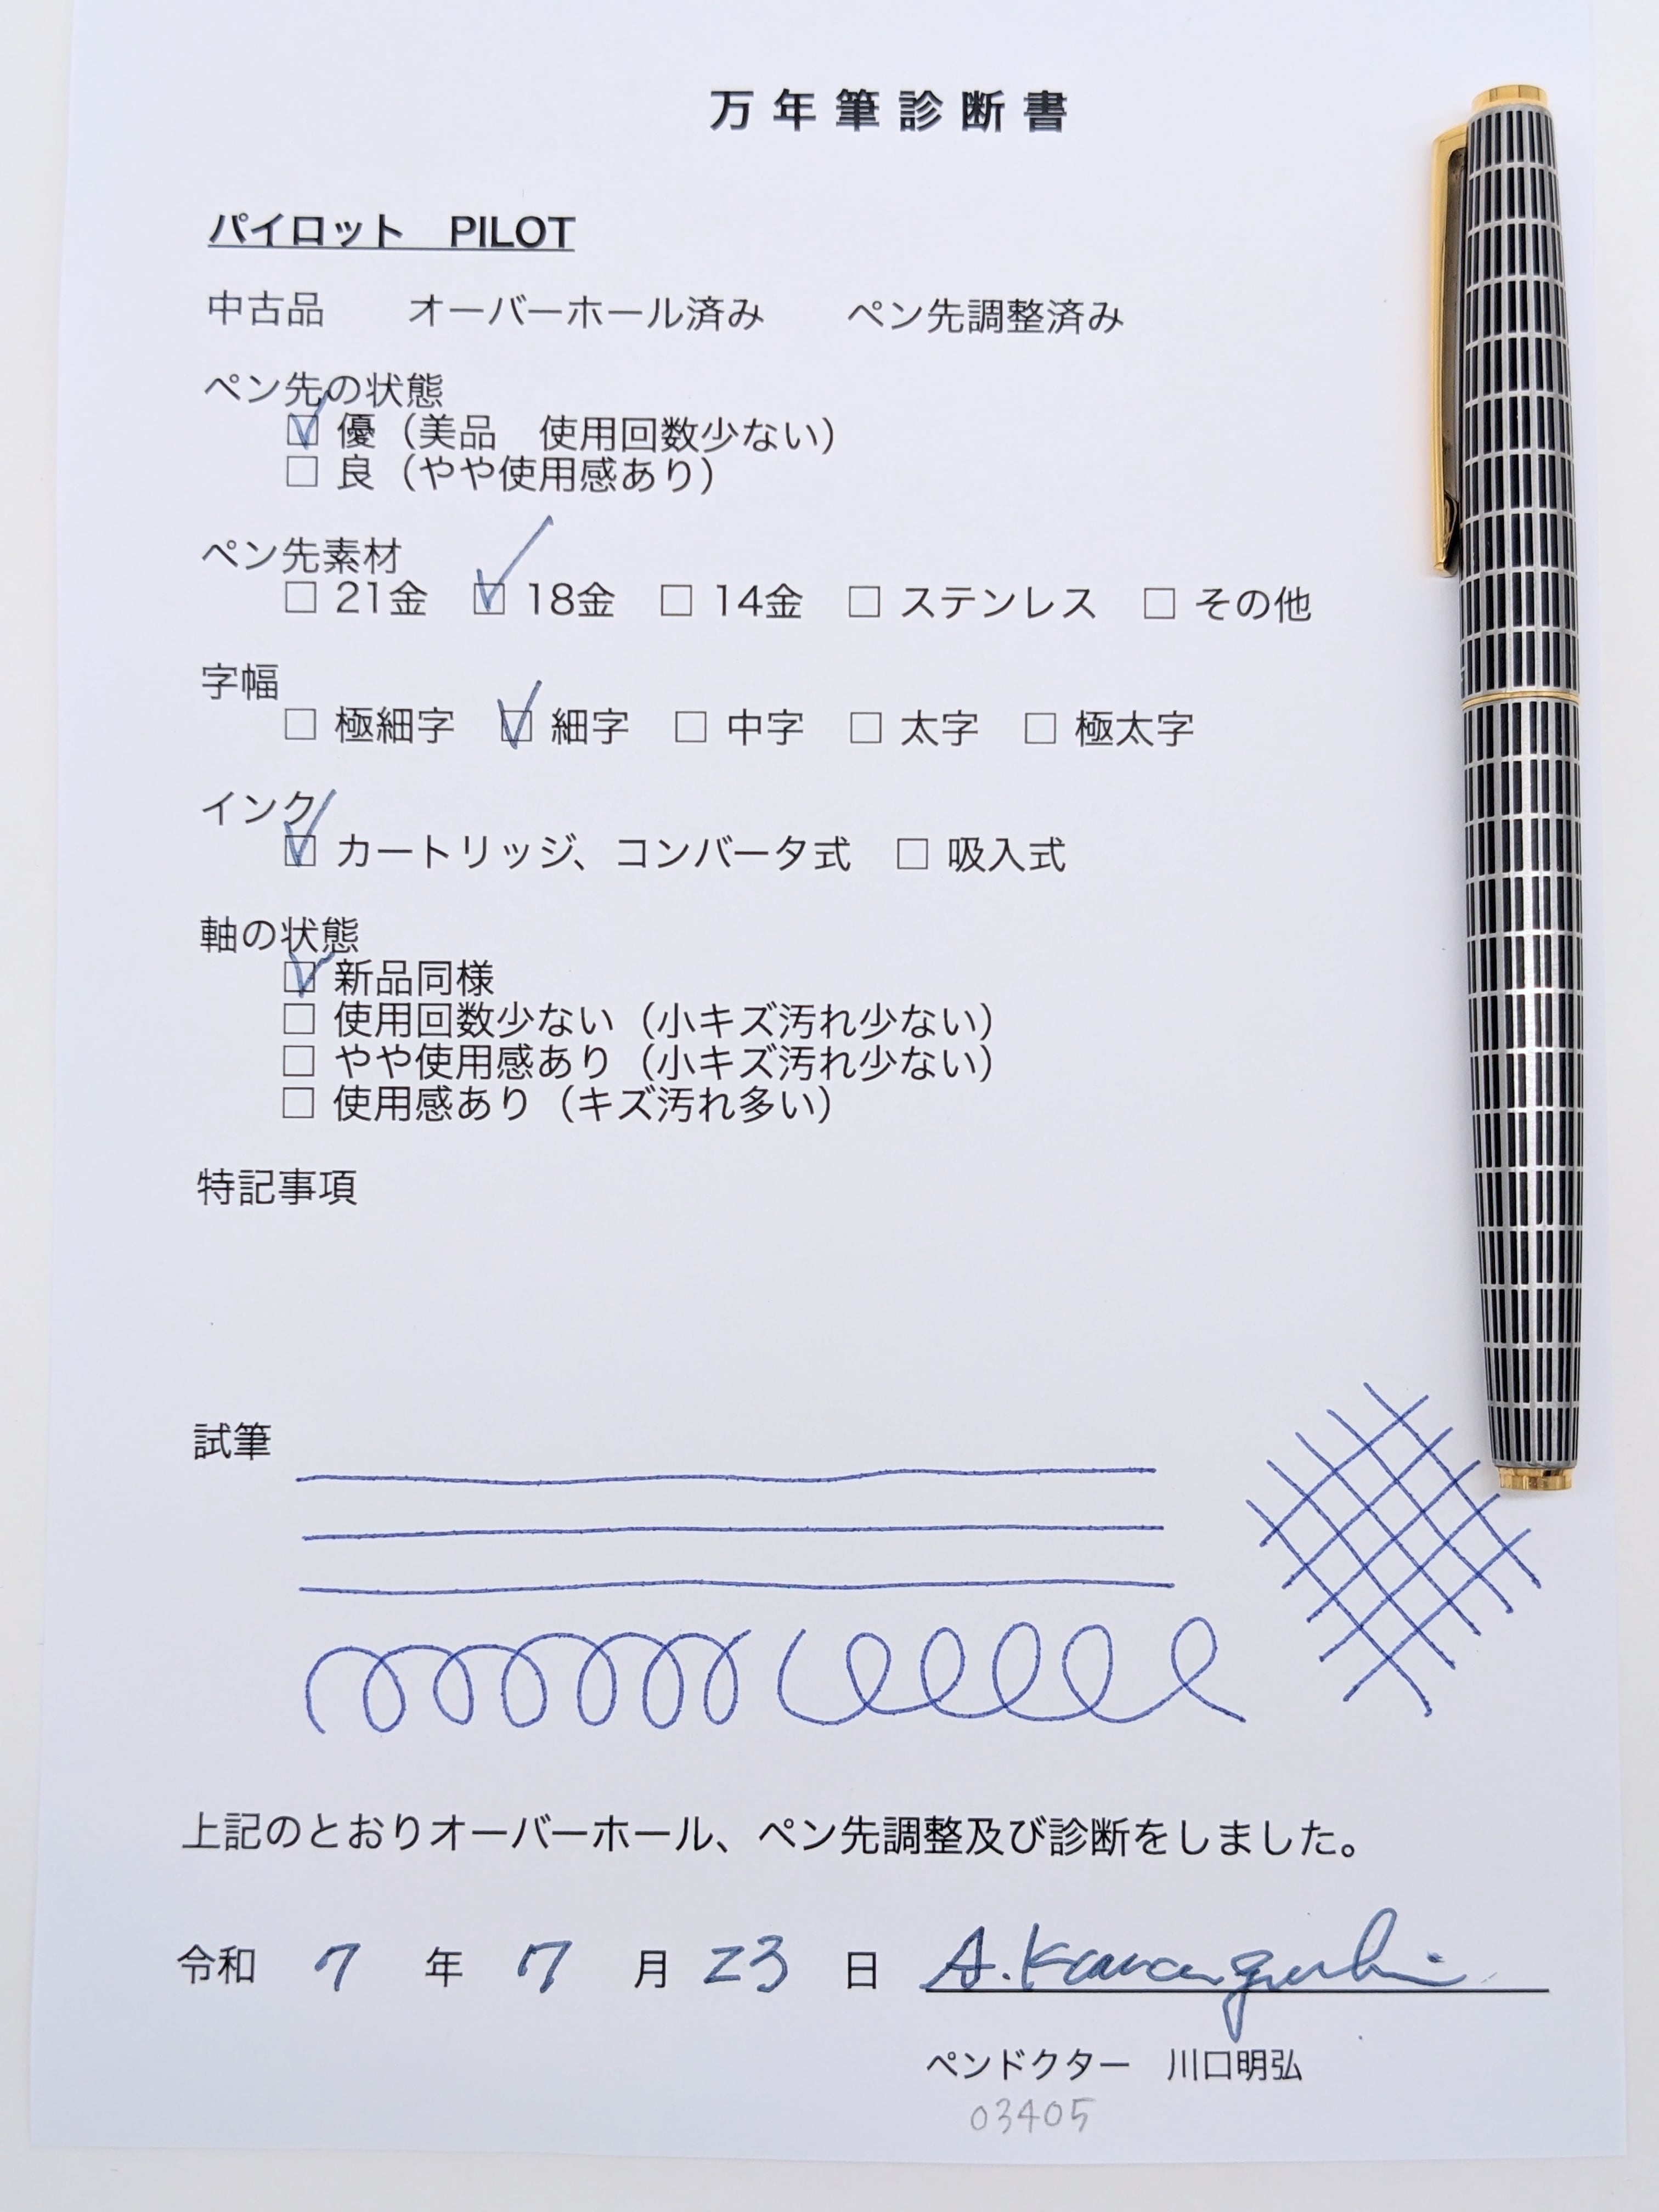 万年筆診断書
パイロット　PILOT
中古品　　オーバーホール済み　　ペン先調整済み
ペン先の状態
☑ 優（美品　使用回数少ない）
□ 良（やや使用感あり）
ペン先素材
□ 21金　☑ 18金　□ 14金　□ ステンレス　□ その他
字幅
□ 極細字　☑ 細字　□ 中字　□ 太字　□ 極太字
インク
☑ カートリッジ、コンバータ式　□ 吸入式
軸の状態
☑ 新品同様
□ 使用回数少ない（小キズ汚れ少ない）
□ やや使用感あり（小キズ汚れ少ない）
□ 使用感あり（キズ汚れ多い）
特記事項
試筆
上記のとおりオーバーホール、ペン先調整及び診断をしました。
令和　7　年　7　月　23　日　A. Kawaguchi
ペンドクター　川口明弘
03405